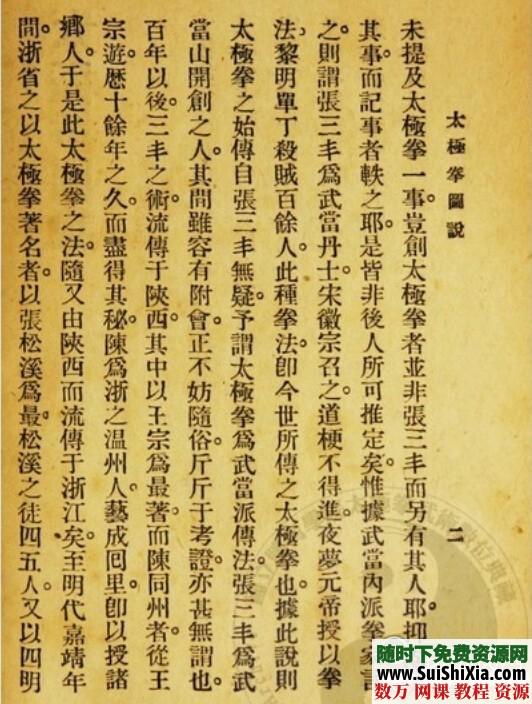 太極拳圖說
二
未提及太極拳一事。豈創太極拳者並非張三丰而另有其人耶。抑
其事而記事者軼之耶。是皆非後人所可推定矣。惟據武當內派拳
之。則謂張三丰爲武當丹士。宋徽宗召之。道梗不得進。夜夢元帝授以拳
法。黎明單丁殺賊百餘人。此種拳法。卽今世所傳之太極拳也。據此說則
太極拳之始傳自張三丰無疑。予謂太極拳爲武當派傳法。張三丰爲武
當山開創之人。其間雖容有附會。正不妨隨俗。斤斤于考證。亦甚無謂也。
百年以後。三丰之術。流傳于陝西。其中以王宗爲最著。而陳同州者從王
宗遊歷十餘年之久。而盡得其秘。陳爲浙之温州人。藝成囘里。卽以授諸
鄉人。于是此太極拳之法。隨又由陝西而流傳于浙江矣。至明代嘉靖年
間。浙省之以太極拳著名者。以張松溪爲最。松溪之徒四五人。又以四明
随时下免费资源网
www.SuiShiXia.com
数万 网课 教程 资源